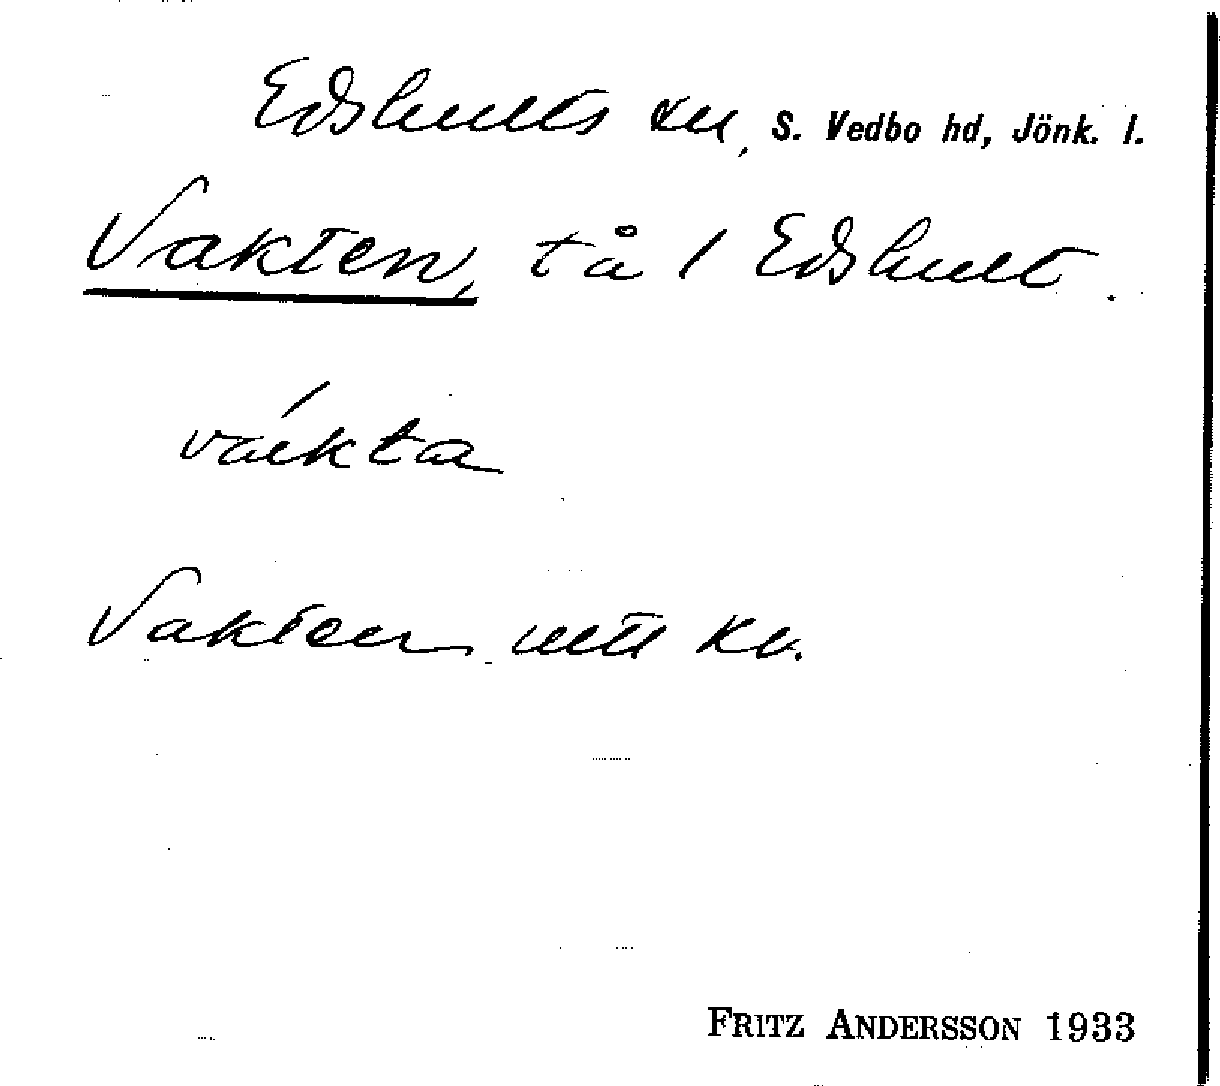 Edshults sn, S. Vedbo hd, Jönk. l.
Vakten, tå / Edshult.
vákta
Vakten utt kv.
FRITZ ANDERSSON 1933